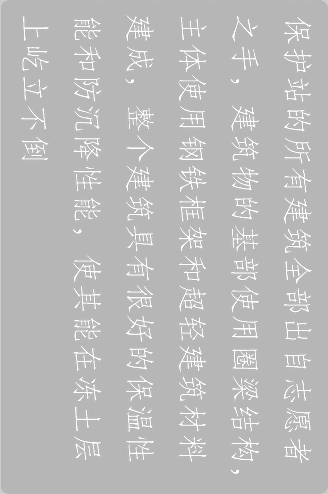 保护站的所有建筑全部出自志愿者
之手，建筑物的基部使用圈梁结构，
主体使用钢铁框架和超轻建筑材料
建成，整个建筑具有很好的保温性
能和防沉降性能，使其能在冻土层
上屹立不倒